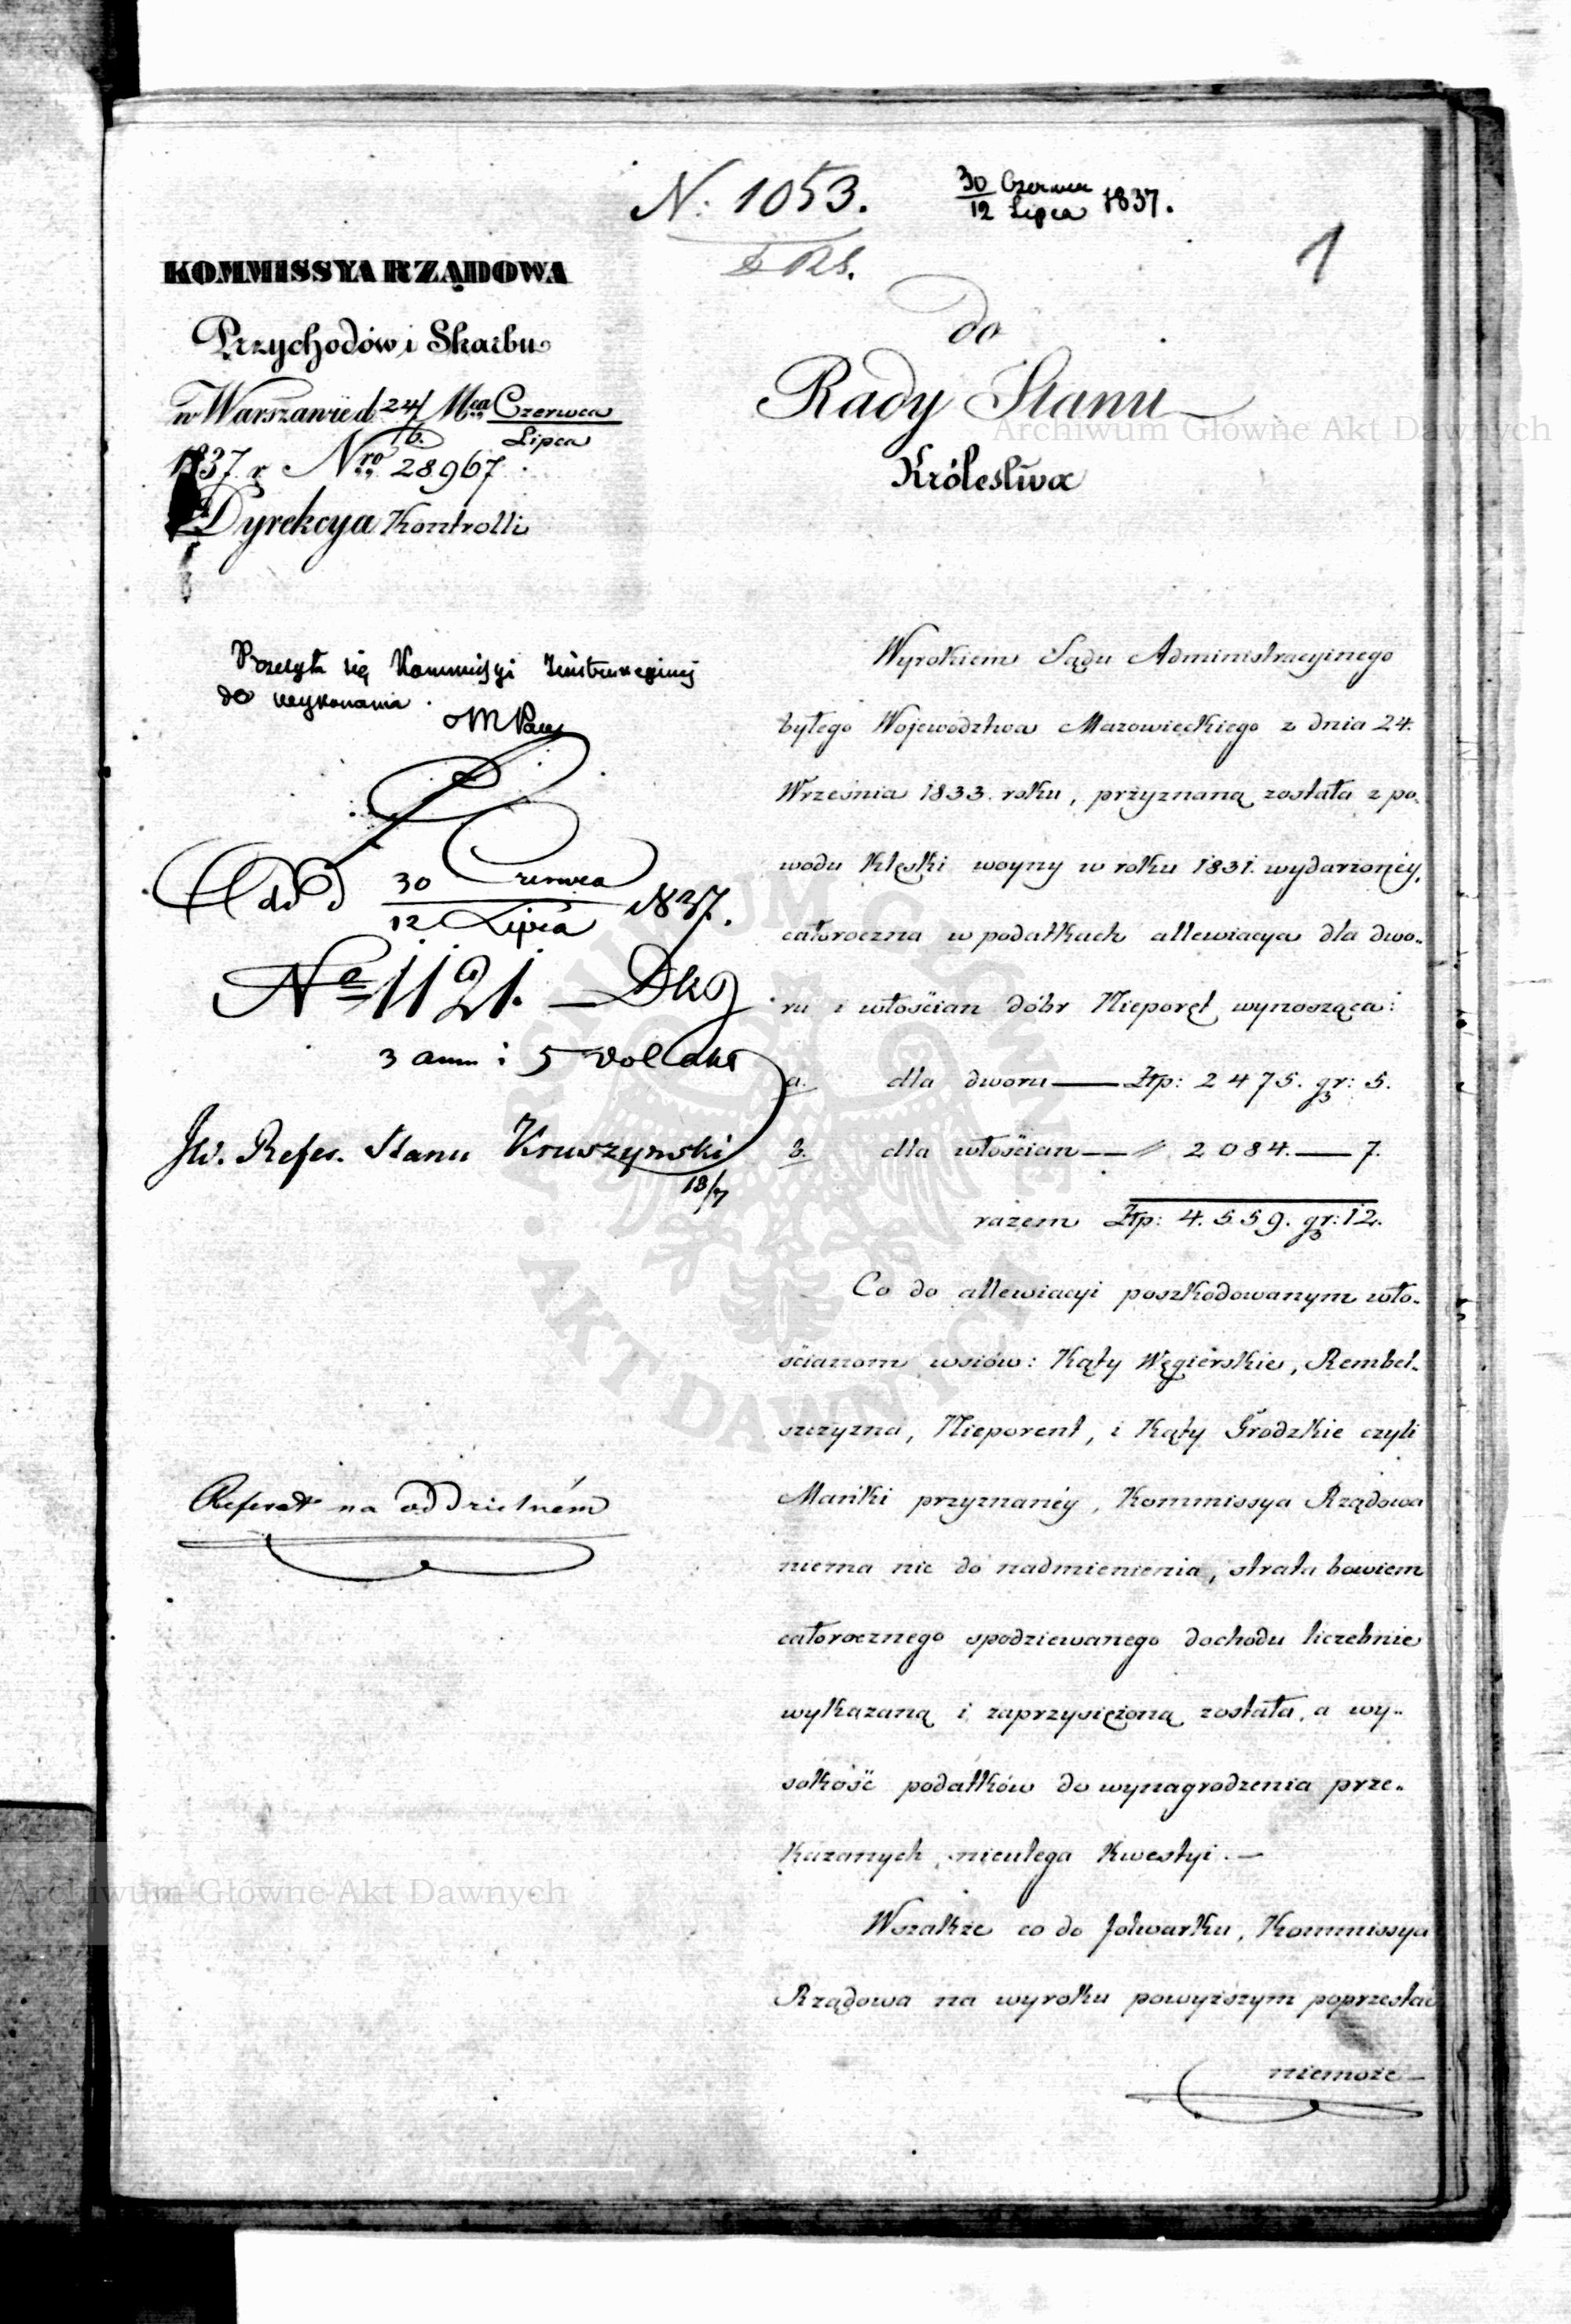 N. 1053.
30 Czerwca
12 Lipca 1837.
1
KOMMISSYA RZĄDOWA
Przychodów i Skarbu
w Warszawie d. 24/6. Mca Czerwca
Lipca
1837 r. Nro 28967.
Dyrekcya Kontrolli
do
Rady Stanu
Królestwa
Przesyła się Kommissyi Instrukcyjnej
do wykonania.
Odd d 30 Czerwca
12 Lipca 1837.
No 1121.
3 ann i 5 vol akt
JW. Refer. Stanu Kruszynski
18/7
Referat na oddzielném
Wyrokiem Sądu Administracyinego
byłego Województwa Mazowieckiego z dnia 24.
Września 1833. roku, przyznaną została z po-
wodu klęski woyny w roku 1831. wydarzonéy,
całoroczna w podatkach allewiacya dla dwo-
ru i włościan dóbr Nieporęt wynosząca:
a. dla dworu — Złp: 2475. gr: 5.
b. dla włościan — " 2084. — 7.
razem Złp: 4.559. gr: 12.
Co do allewiacyi poszkodowanym wło-
ścianom wsiów: Kąty Węgierskie, Rembel-
szczyzna, Nieporent, i Kąty Grodzkie czyli
Mańki przyznanéy, Kommissya Rządowa
niema nic do nadmienienia, strata bowiem
całorocznego spodziewanego dochodu liczebnie
wykazaną i zaprzysiężoną została, a wy-
sokość podatków do wynagrodzenia prze-
kazanych, nieulega kwestyi. —
Wszakże co do folwarku, Kommissya
Rządowa na wyroku powyższym poprzestać
niemoże
Archiwum Główne Akt Dawnych
Archiwum Główne Akt Dawnych
ARCHIWUM GŁÓWNE · AKT DAWNYCH ·